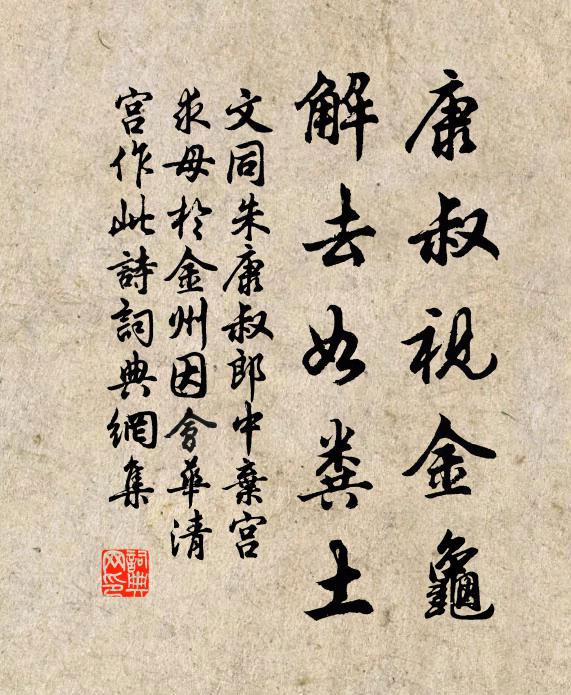 康叔視金龜
解去如糞土
文同朱康叔郎中棄官
求母於金州因會華清
宮作此詩詞典網集
詞典网印